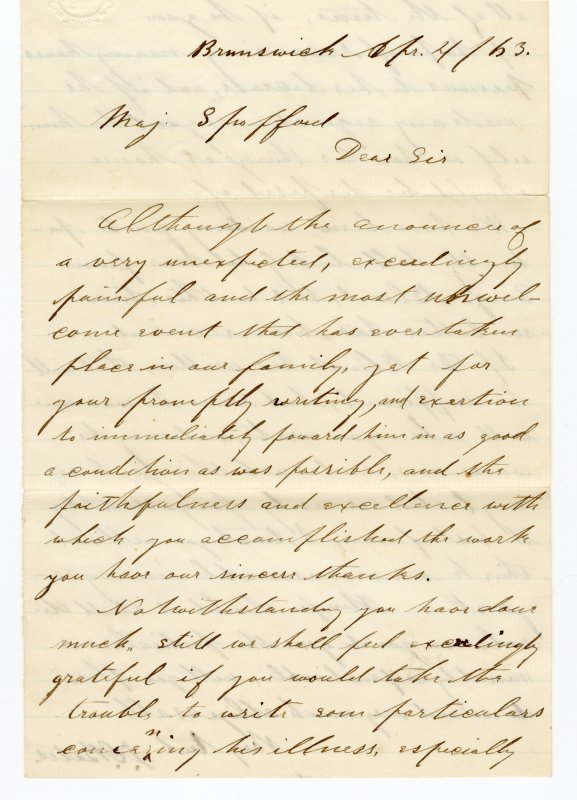 Brunswick Apr. 4/63.
Maj. Spofford
Dear Sir
Although the anouncer of
a very unexpected, excerdingly
painful and the most unwel-
come event that has ever taken
place in our family, yet for
your promptly writing, and exertion
to immediately foward him in as good
a condition as was possible, and the
faithfulness and excellence with
which you accomplished the work
you have our sincere thanks.
Notwithstanding you have done
much, still we shall feel excedingly
grateful if you would take the
trouble to write some particulars
concerning his illness, especially